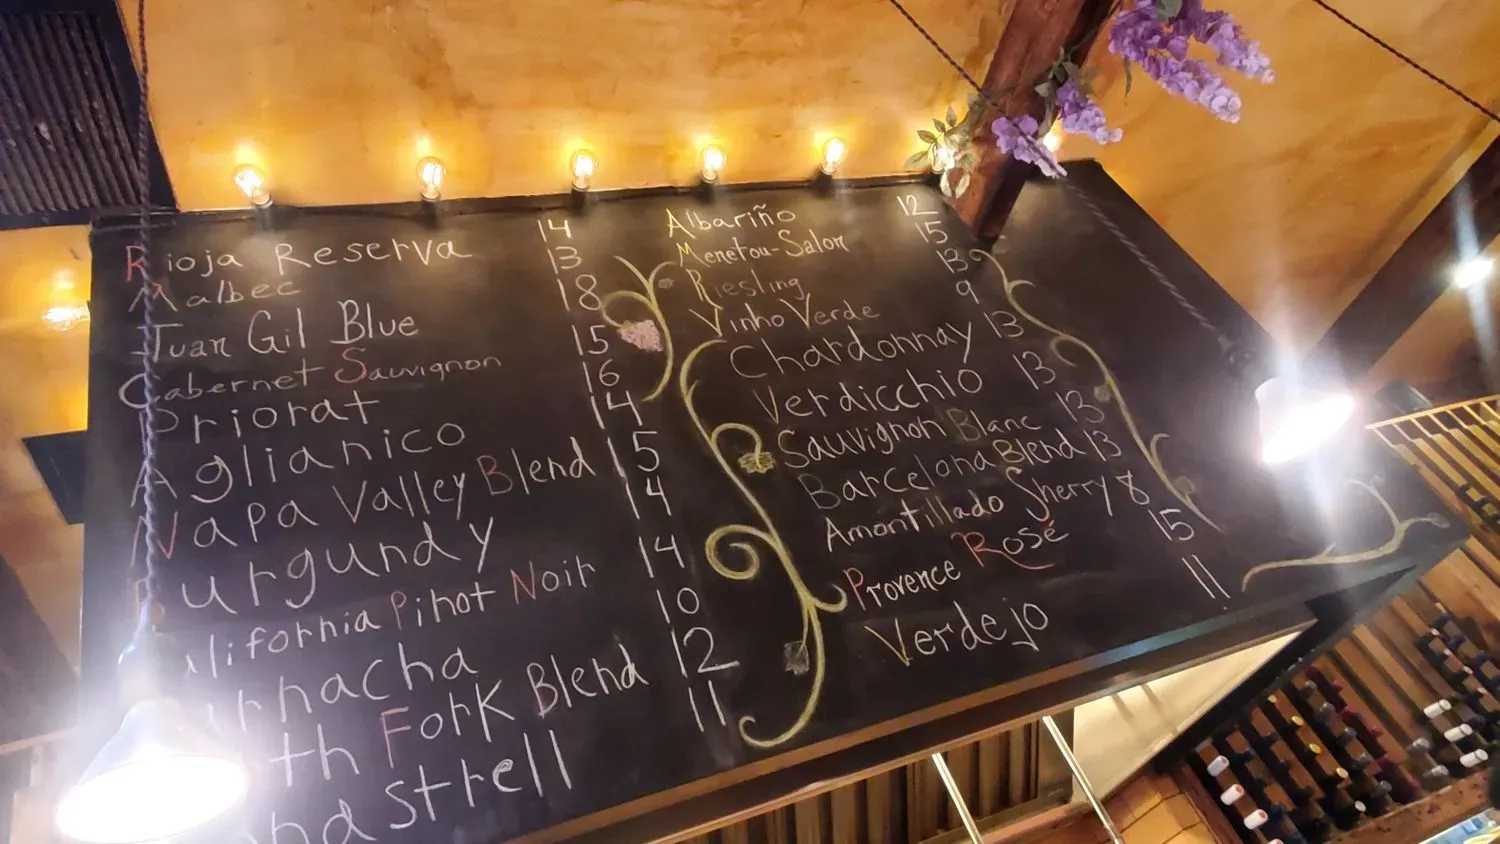 Rioja Reserva 14
Malbec 13
Juan Gil Blue 18
Cabernet Sauvignon 15
Priorat 16
Aglianico 14
Napa Valley Blend 15
Burgundy 14
alifornia Pinot Noir 14
rnacha 10
th Fork Blend 12
nastrell 11
Albariño 12
Menetou-Salon 15
Riesling 13
Vinho Verde 9
Chardonnay 13
Verdicchio 13
Sauvignon Blanc 13
Barcelona Blend 13
Amontillado Sherry 8
Provence Rosé 15
Verdejo 11